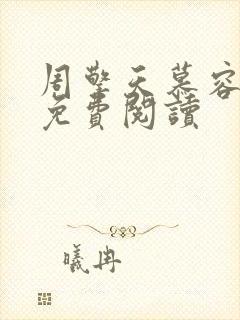 周擎天慕容
免費閱讀
曦冉